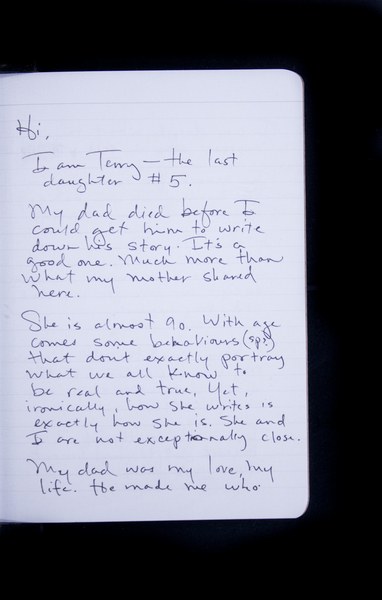 Hi,
I am Terry — the last
daughter #5.
My dad died before I
could get him to write
down his story. It's a
good one. Much more than
what my mother shared
here.
She is almost 90. With age
comes some behaviours (sp?)
that dont exactly portray
what we all know to
be real and true, Yet,
ironically, how she writes is
exactly how she is. She and
I are not exceptionally close.
My dad was my love, my
life. He made me who